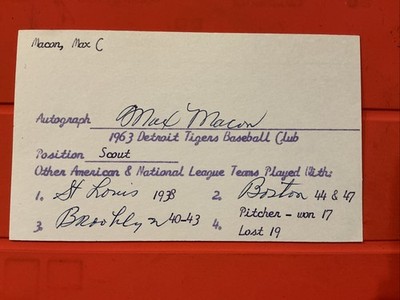 Macon, Max C
Autograph Max Macon
1963 Detroit Tigers Baseball Club
Position Scout
Other American & National League Teams Played With:
1. St Louis 1938 2. Boston 44 & 47
3. Brooklyn 40-43 4. Pitcher - won 17
Lost 19